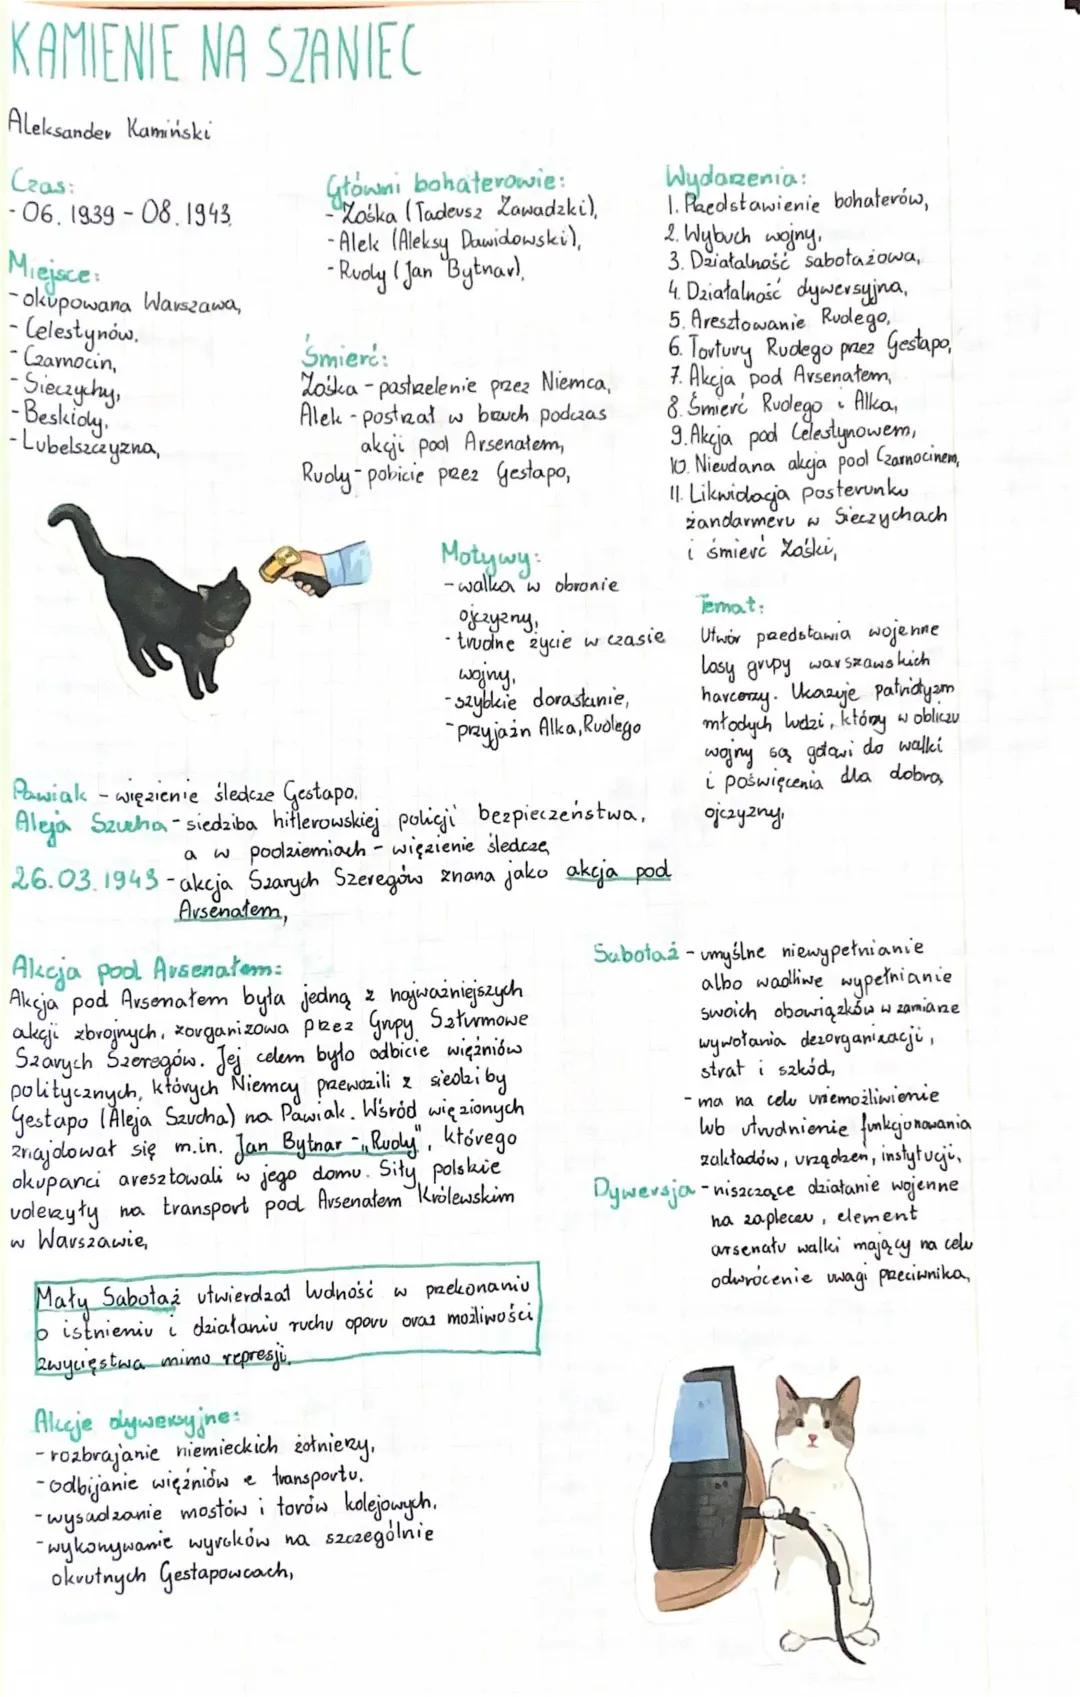 KAMIENIE NA SZANIEC
Aleksander Kamiński
Czas:
- 06.1939 - 08.1943,
Miejsce:
- okupowana Warszawa,
- Celestynów,
- Czarnocin,
- Sieczychy,
- Beskidy,
- Lubelszczyzna,
Główni bohaterowie:
- Zośka (Tadeusz Zawadzki),
- Alek (Aleksy Dawidowski),
- Rudy (Jan Bytnar),
Śmierć:
Zośka - postrzelenie przez Niemca,
Alek - postrzał w brzuch podczas
akcji pod Arsenałem,
Rudy - pobicie przez Gestapo,
Motywy:
- walka w obronie
ojczyzny,
- trudne życie w czasie
wojny,
- szybkie dorastanie,
- przyjaźń Alka, Rudego
Wydarzenia:
1. Przedstawienie bohaterów,
2. Wybuch wojny,
3. Działalność sabotażowa,
4. Działalność dywersyjna,
5. Aresztowanie Rudego,
6. Tortury Rudego przez Gestapo,
7. Akcja pod Arsenałem,
8. Śmierć Rudego i Alka,
9. Akcja pod Celestynowem,
10. Nieudana akcja pod Czarnocinem,
11. Likwidacja posterunku
żandarmeru w Sieczychach
i śmierć Zośki,
Temat:
Utwór przedstawia wojenne
losy grupy warszawskich
harcerzy. Ukazuje patriotyzm
młodych ludzi, którzy w obliczu
wojny są gotowi do walki
i poświęcenia dla dobra
ojczyzny,
Pawiak - więzienie śledcze Gestapo,
Aleja Szucha - siedziba hitlerowskiej policji bezpieczeństwa,
a w podziemiach - więzienie śledcze,
26.03.1943 - akcja Szarych Szeregów znana jako akcja pod
Arsenałem,
Akcja pod Arsenałem:
Akcja pod Arsenałem była jedną z najważniejszych
akcji zbrojnych, zorganizowa przez Grupy Szturmowe
Szarych Szeregów. Jej celem było odbicie więźniów
politycznych, których Niemcy przewozili z siedziby
Gestapo (Aleja Szucha) na Pawiak. Wśród więzionych
znajdował się m.in. Jan Bytnar - „Rudy", którego
okupanci aresztowali w jego domu. Siły polskie
uderzyły na transport pod Arsenałem Królewskim
w Warszawie,
Mały Sabotaż utwierdzał ludność w przekonaniu
o istnieniu i działaniu ruchu oporu oraz możliwości
zwycięstwa mimo represji.
Akcje dywersyjne:
- rozbrajanie niemieckich żołnierzy,
- odbijanie więźniów z transportu,
- wysadzanie mostów i torów kolejowych,
- wykonywanie wyroków na szczególnie
okrutnych Gestapowcach,
Sabotaż - umyślne niewypełnianie
albo wadliwe wypełnianie
swoich obowiązków w zamiarze
wywołania dezorganizacji,
strat i szkód,
- ma na celu uniemożliwienie
lub utrudnienie funkcjonowania
zakładów, urządzeń, instytucji,
Dywersja - niszczące działanie wojenne
na zapleczu, element
arsenału walki mający na celu
odwrócenie uwagi przeciwnika,